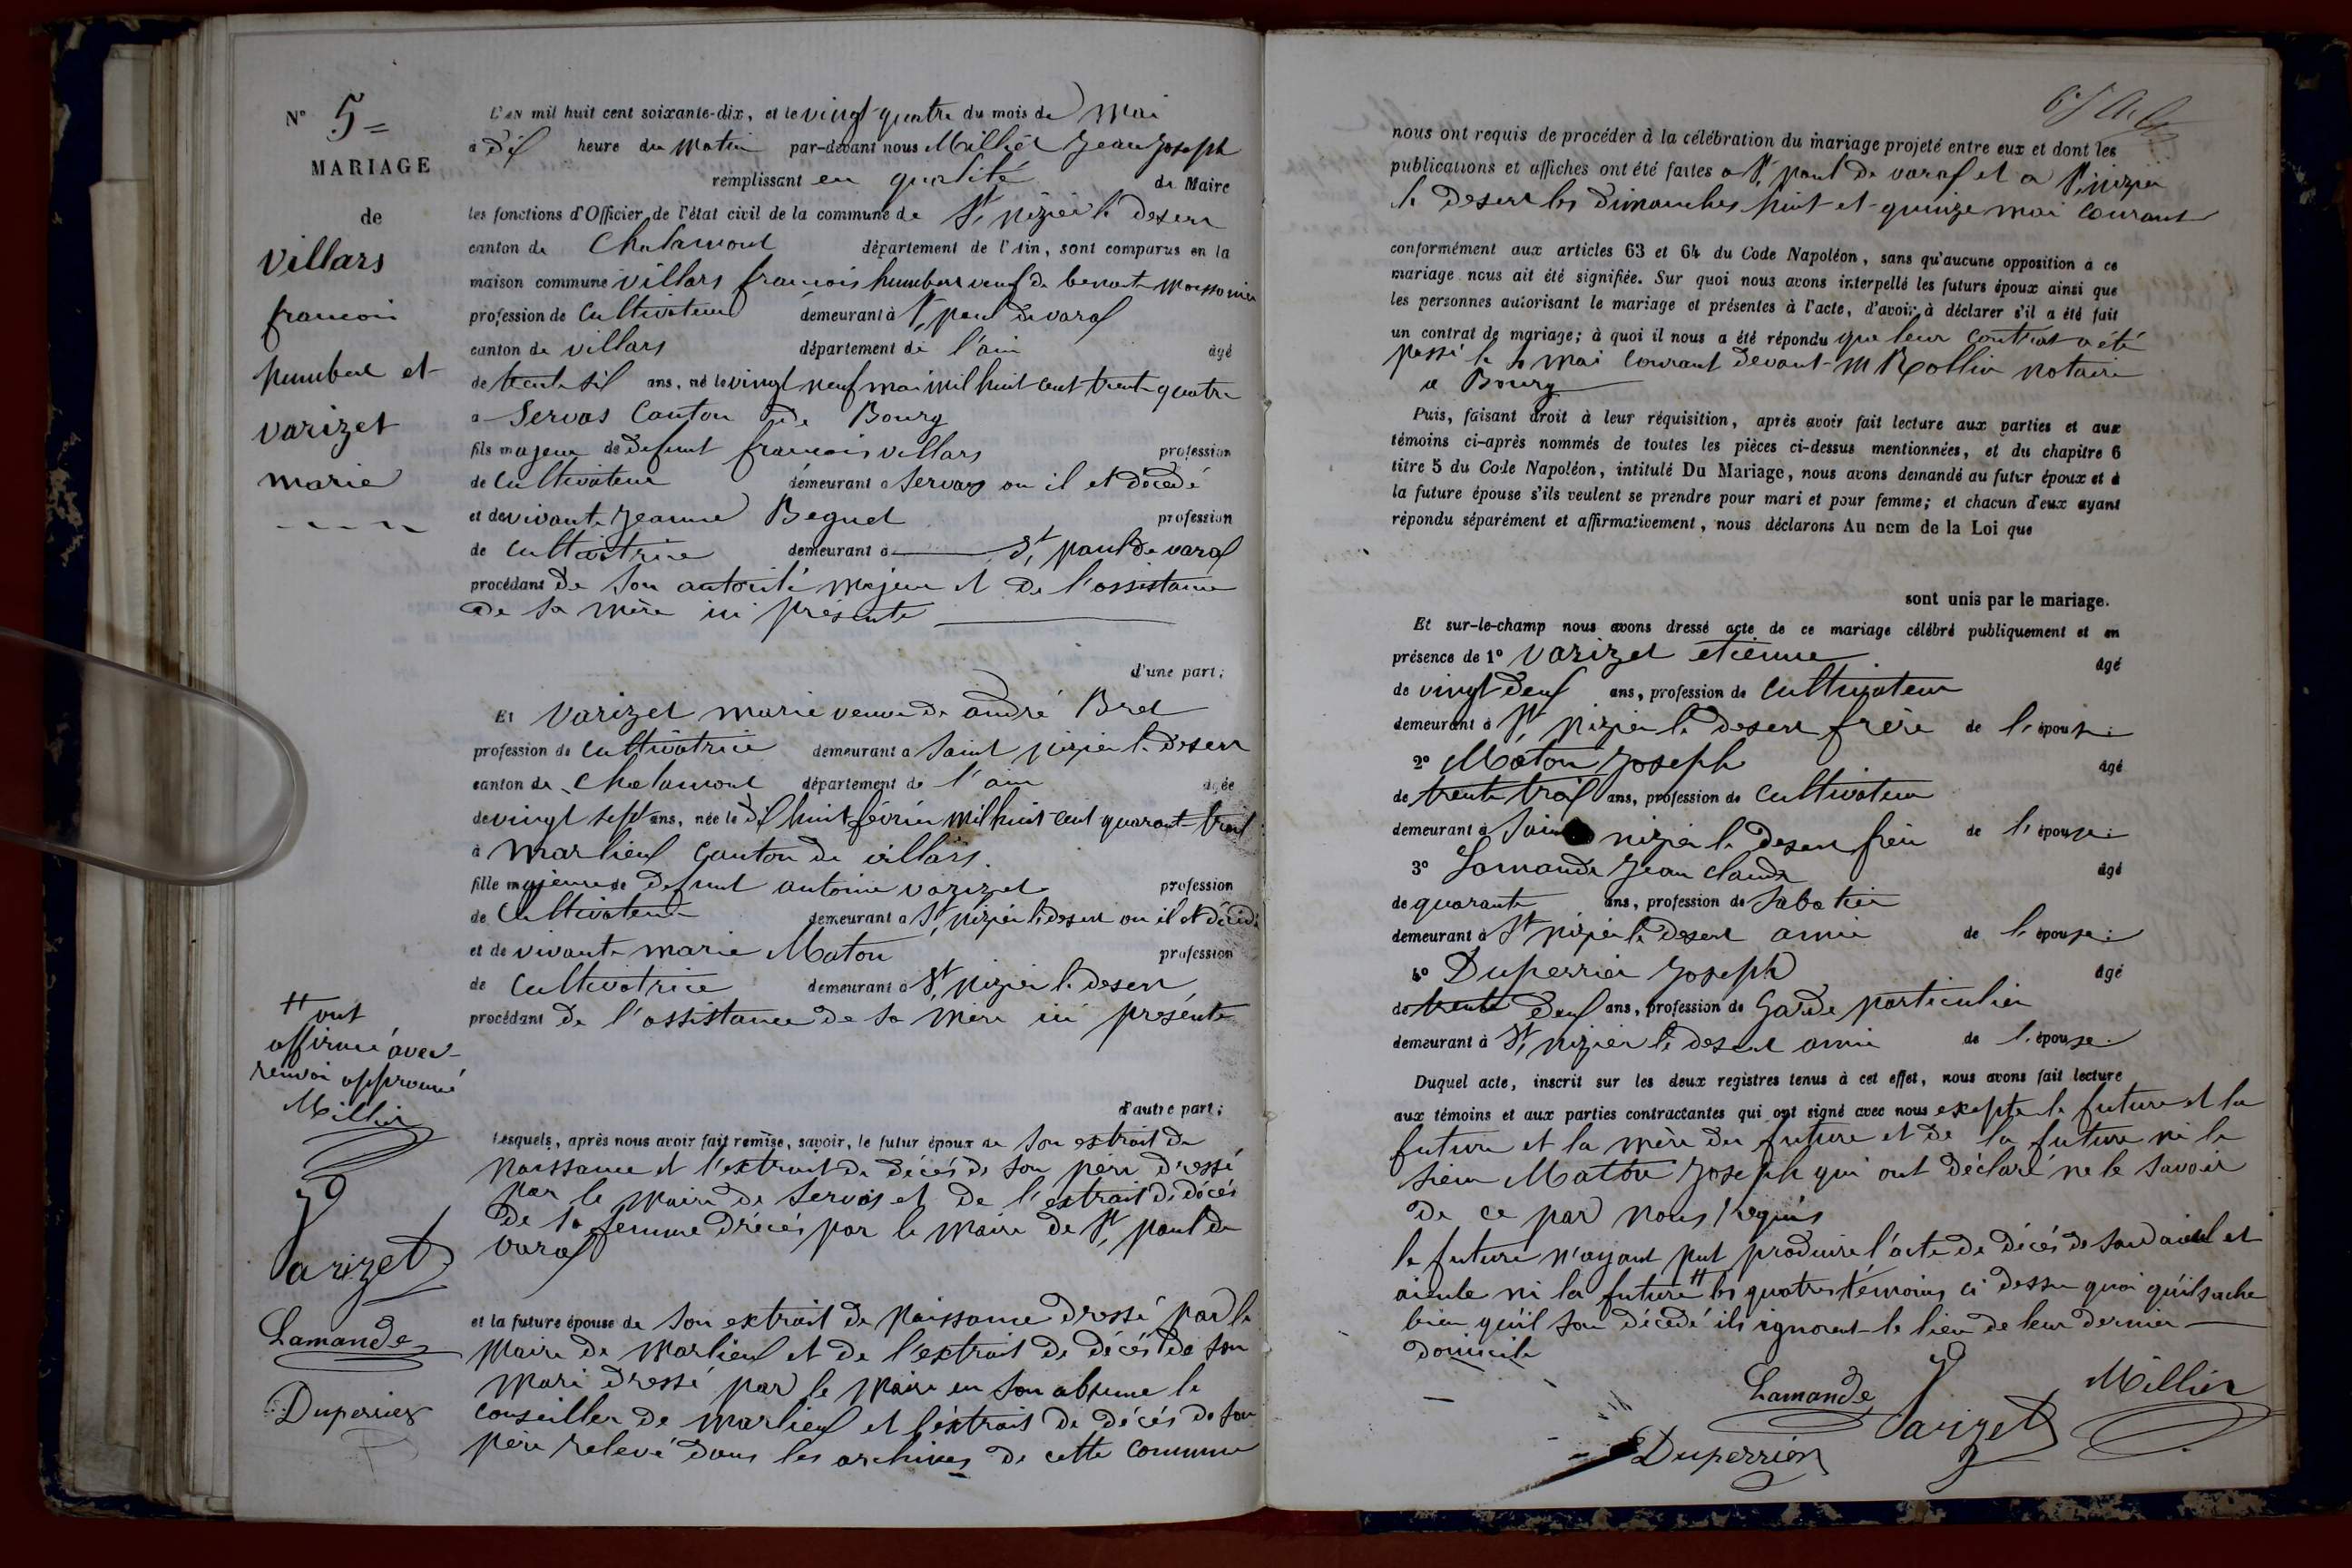 N° 5=
MARIAGE
de
villars
francois
humbert et
varizet
marie
L'AN mil huit cent soixante-dix, et le vingt quatre du mois de mai
à dix heure du matin par-devant nous Millier Jean Joseph
remplissant en qualité de Maire
les fonctions d'Officier de l'état civil de la commune de St nizier le desert
canton de Chalamont département de l'Ain, sont comparus en la
maison commune villars francois humbert veuf de benoite moissonier
profession de Cultivateur demeurant à St paul de varax
canton de villars département de l'ain âgé
de trente six ans, né le vingt neuf mai mil huit cent trente quatre
a Servas Canton de Bourg
fils majeur de defunt francois villars profession
de cultivateur demeurant a Servas ou il et décédé
et de vivante Jeanne Beguet profession
de cultivatrice demeurant a St paul de varax
procédant de son autorité majeur et de l'assistance
de sa mère ici présente
d'une part;
Et varizet marie veuve de andré Bret
profession de cultivatrice demeurant a Saint nizier le desert
canton de Chalamont département de l'ain âgée
de vingt sept ans, née le dix huit février mil huit cent quarante trois
à marlieux Canton de villars.
fille majeure de defunt antoine varizet profession
de Cultivateur demeurant a St nizier le desert ou il et décédé
et de vivante marie Maton profession
de Cultivatrice demeurant a St nizier le desert
procédant de l'assistance de sa mère ici présente
d'autre part;
H ont
affirmé avec
renvoi approuvé
Millier
Varizet
Lamande
Duperrier
Lesquels, après nous avoir fait remise, savoir, le futur époux de son extrait de
naissance et l'extrait de décés de son père dressé
par le maire de Servas et de l'extrait de décés
de sa femme drécés par le maire de St paul de
varax
et la future épouse de son extrait de naissance dressé par le
maire de marlieux et de l'extrait de décés de son
mari dressé par le maire en son absence le
conseiller de marlieux et l'extrait de décés de son
père relevé dans les archives de cette commune
nous ont requis de procéder à la célébration du mariage projeté entre eux et dont les
publications et affiches ont été faites a St paul de varax et a St nizier
le desert les dimanches huit et quinze mai courant
conformément aux articles 63 et 64 du Code Napoléon, sans qu'aucune opposition à ce
mariage nous ait été signifiée. Sur quoi nous avons interpellé les futurs époux ainsi que
les personnes autorisant le mariage et présentes à l'acte, d'avoir à déclarer s'il a été fait
un contrat de mariage; à quoi il nous a été répondu que leur contrat a été
passé le mai courant devant m Rollin notaire
a Bourg
Puis, faisant droit à leur réquisition, après avoir fait lecture aux parties et aux
témoins ci-après nommés de toutes les pièces ci-dessus mentionnées, et du chapitre 6
titre 5 du Code Napoléon, intitulé Du Mariage, nous avons demandé au futur époux et à
la future épouse s'ils veulent se prendre pour mari et pour femme; et chacun d'eux ayant
répondu séparément et affirmativement, nous déclarons Au nom de la Loi que
sont unis par le mariage.
Et sur-le-champ nous avons dressé acte de ce mariage célébré publiquement et en
présence de 1° varizet etienne âgé
de vingt deux ans, profession de cultivateur
demeurant à St nizier le desert frère de l'épouse.
2° Maton Joseph âgé
de trente trois ans, profession de Cultivateur
demeurant à Saint nizier le desert frère de l'épouse.
3° Lamande Jean claude âgé
de quarante ans, profession de Sabotier
demeurant à St nizier le desert amie de l'épouse.
4° Duperrier Joseph âgé
de trente deux ans, profession de Garde particulier
demeurant à St nizier le desert amie de l'épouse.
Duquel acte, inscrit sur les deux registres tenus à cet effet, nous avons fait lecture
aux témoins et aux parties contractantes qui ont signé avec nous excepte le future et la
future et la mère du future et de la future ni le
sieur Maton Joseph qui ont déclaré ne le savoir
de ce par nous requis
le future n'ayant put produire l'acte de décés de son aieul et
aieule ni la future H les quatres témoins ci dessu quoi qu'il sache
bien qu'il son décédé ils ignorent le lieu de leur dernier
domicile
Lamande Varizet Millier
Duperrier